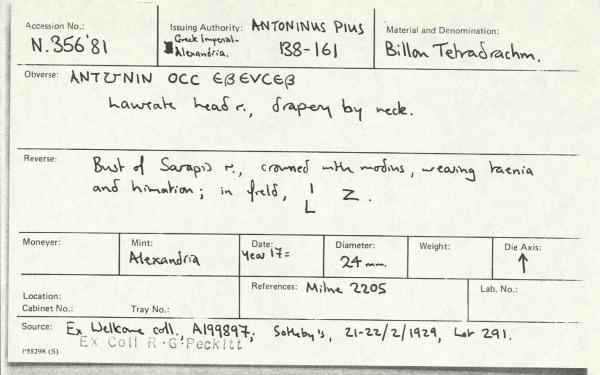 Accession No.:
N.356'81
Issuing Authority: ANTONINUS PIUS
Greek Imperial-
Alexandria. 138-161
Material and Denomination:
Billon Tetradrachm.
Obverse: ANTΩNIN OCC ЄβЄVCЄβ
Laureate head r., drapery by neck.
Reverse: Bust of Sarapis r., crowned with modius, wearing taenia
and himation; in field, I Z.
L
Moneyer:
Mint:
Alexandria
Date:
Year 17=
Diameter:
24 mm.
Weight:
Die Axis:
↑
Location:
Cabinet No.: Tray No.:
References: Milne 2205
Lab. No.:
Source: Ex Wellcome coll. A199897; Sotheby's, 21-22/2/1929, Lot 291.
Ex Coll R.G.Peckitt
1'55298 (S)